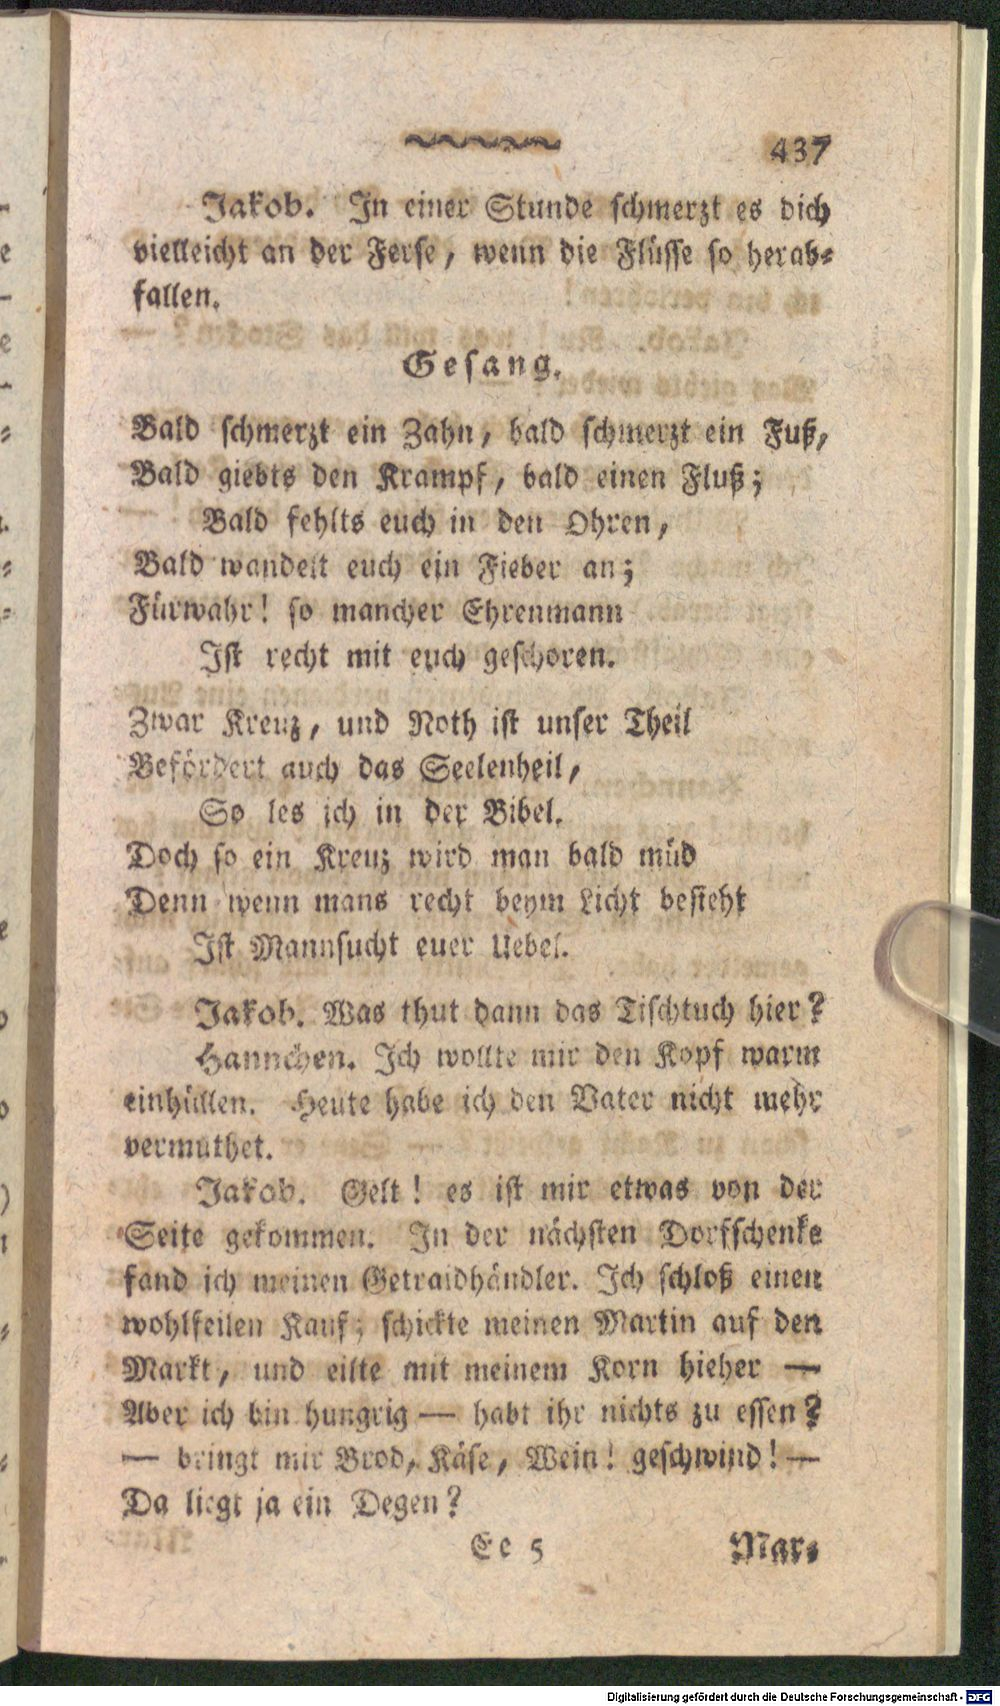 437
Jakob. In einer Stunde schmerzt es dich
vielleicht an der Ferse, wenn die Flüsse so herab-
fallen.
Gesang.
Bald schmerzt ein Zahn, bald schmerzt ein Fuß,
Bald giebts den Krampf, bald einen Fluß;
Bald fehlts euch in den Ohren,
Bald wandelt euch ein Fieber an;
Fürwahr! so mancher Ehrenmann
Ist recht mit euch geschoren.
Zwar Kreuz, und Noth ist unser Theil
Befördert auch das Seelenheil,
So les ich in der Bibel.
Doch so ein Kreuz wird man bald müd
Denn wenn mans recht beym Licht besieht
Ist Mannsucht euer Uebel.
Jakob. Was thut dann das Tischtuch hier?
Hannchen. Ich wollte mir den Kopf warm
einhüllen. Heute habe ich den Vater nicht mehr
vermuthet.
Jakob. Gelt! es ist mir etwas von der
Seite gekommen. In der nächsten Dorfschenke
fand ich meinen Getraidhändler. Ich schloß einen
wohlfeilen Kauf; schickte meinen Martin auf den
Markt, und eilte mit meinem Korn hieher —
Aber ich bin hungrig — habt ihr nichts zu essen?
— bringt mir Brod, Käse, Wein! geschwind! —
Da liegt ja ein Degen?
Ee 5 Mar-
Digitalisierung gefördert durch die Deutsche Forschungsgemeinschaft - DFG